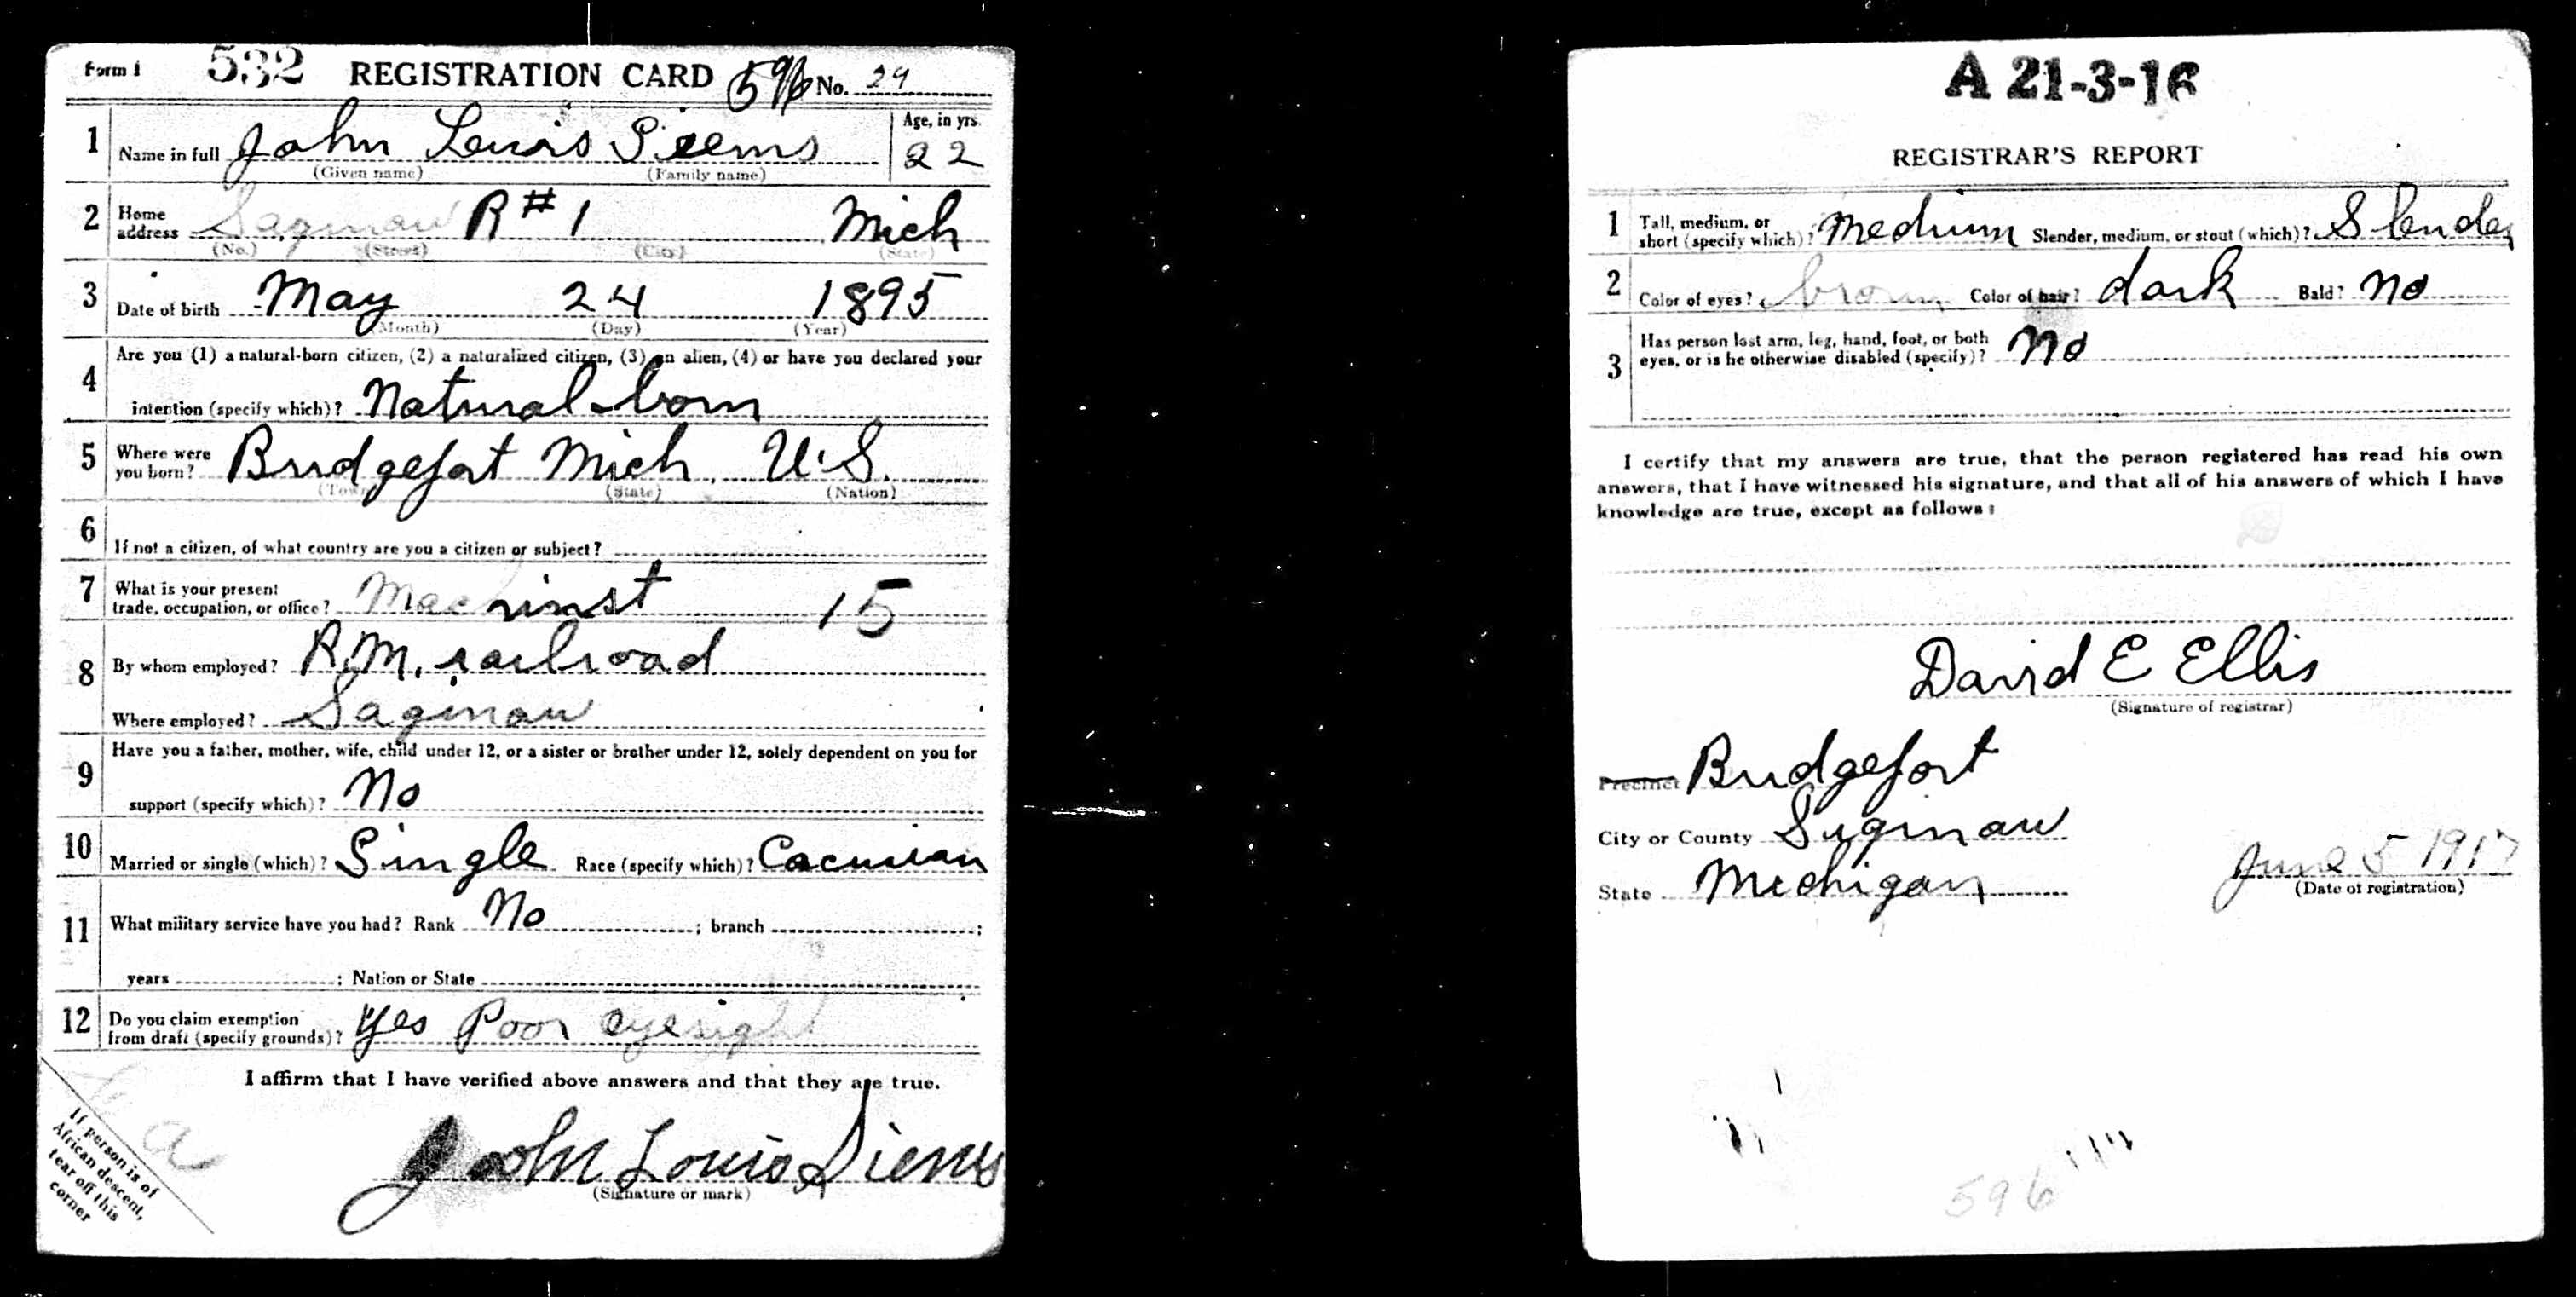 Form 1 532 REGISTRATION CARD 596 No. 29
1 Name in full John Lewis Sieems Age, in yrs. 22
(Given name) (Family name)
2 Home address Saginaw R#1 Mich
(No.) (Street) (City) (State)
3 Date of birth May 24 1895
(Month) (Day) (Year)
4 Are you (1) a natural-born citizen, (2) a naturalized citizen, (3) an alien, (4) or have you declared your
intention (specify which)? Natural-born
5 Where were you born? Bridgefort Mich, U.S.
(Town) (State) (Nation)
6 If not a citizen, of what country are you a citizen or subject?
7 What is your present trade, occupation, or office? Machinist 15
8 By whom employed? P.M. railroad
Where employed? Saginaw
9 Have you a father, mother, wife, child under 12, or a sister or brother under 12, solely dependent on you for
support (specify which)? No
10 Married or single (which)? Single Race (specify which)? Cacusian
11 What military service have you had? Rank No ; branch ;
years ; Nation or State
12 Do you claim exemption from draft (specify grounds)? Yes Poor eyesight
I affirm that I have verified above answers and that they are true.
John Louis Siems
(Signature or mark)
If person is of
African descent,
tear off this
corner
A 21-3-16
REGISTRAR'S REPORT
1 Tall, medium, or short (specify which)? Medium Slender, medium, or stout (which)? Slender
2 Color of eyes? brown Color of hair? dark Bald? No
3 Has person lost arm, leg, hand, foot, or both
eyes, or is he otherwise disabled (specify)? No
I certify that my answers are true, that the person registered has read his own
answers, that I have witnessed his signature, and that all of his answers of which I have
knowledge are true, except as follows:
David E Ellis
(Signature of registrar)
Precinct Bridgefort
City or County Saginaw
State Michigan June 5 1917
(Date of registration)
596